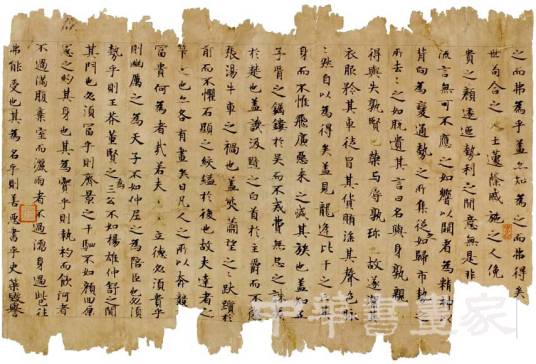 之而弗為乎蓋亦知為之而弗得矣
世苟合之士蘧蒢戚施之人俛
貴之顏逶迤勢利之間意無是非
流言無可不應之如響以闚看為精神以
背向為變通勢之所集從如歸市勢之
所去之如脫遺其言曰名與身孰親
得與失孰賢也榮與辱孰珍也故遂
衣服矜其車徒冒其貨賄淫其聲色脈
然自以為得矣蓋見龍逢比干之
身而不惟飛廉惡来之滅其族也蓋知
子胥之鏤於吳而不戒費無忌之
於楚也蓋譏汲黯之白首於主爵而不
張湯牛車之禍也蓋笑蕭望之跋躓於
前而不懼石顯之絞縊於後也故夫達者之
筭也亦各有盡矣曰凡人之所以奔
富貴何為者哉若夫立德必須貴乎
則幽厲之為天子不如仲尼之為陪臣也必須
勢乎則王莽董賢之為三公不如楊雄仲舒之闃
其門也必須富乎則齊景之千駟不如顏回原
憲之約其身也其為實乎則執杓而飲河者
不過滿腹棄室而灑雨者不過濡身過此以往
弗能受也其為名乎則善惡書乎史策毀譽
中華書畫家